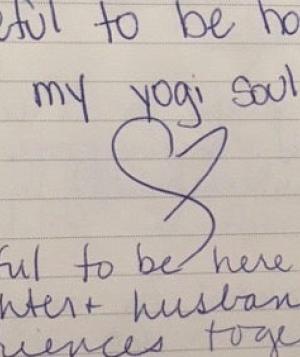 eful to be ho
my yogi soul
ful to be here
hter + husban
riences toge